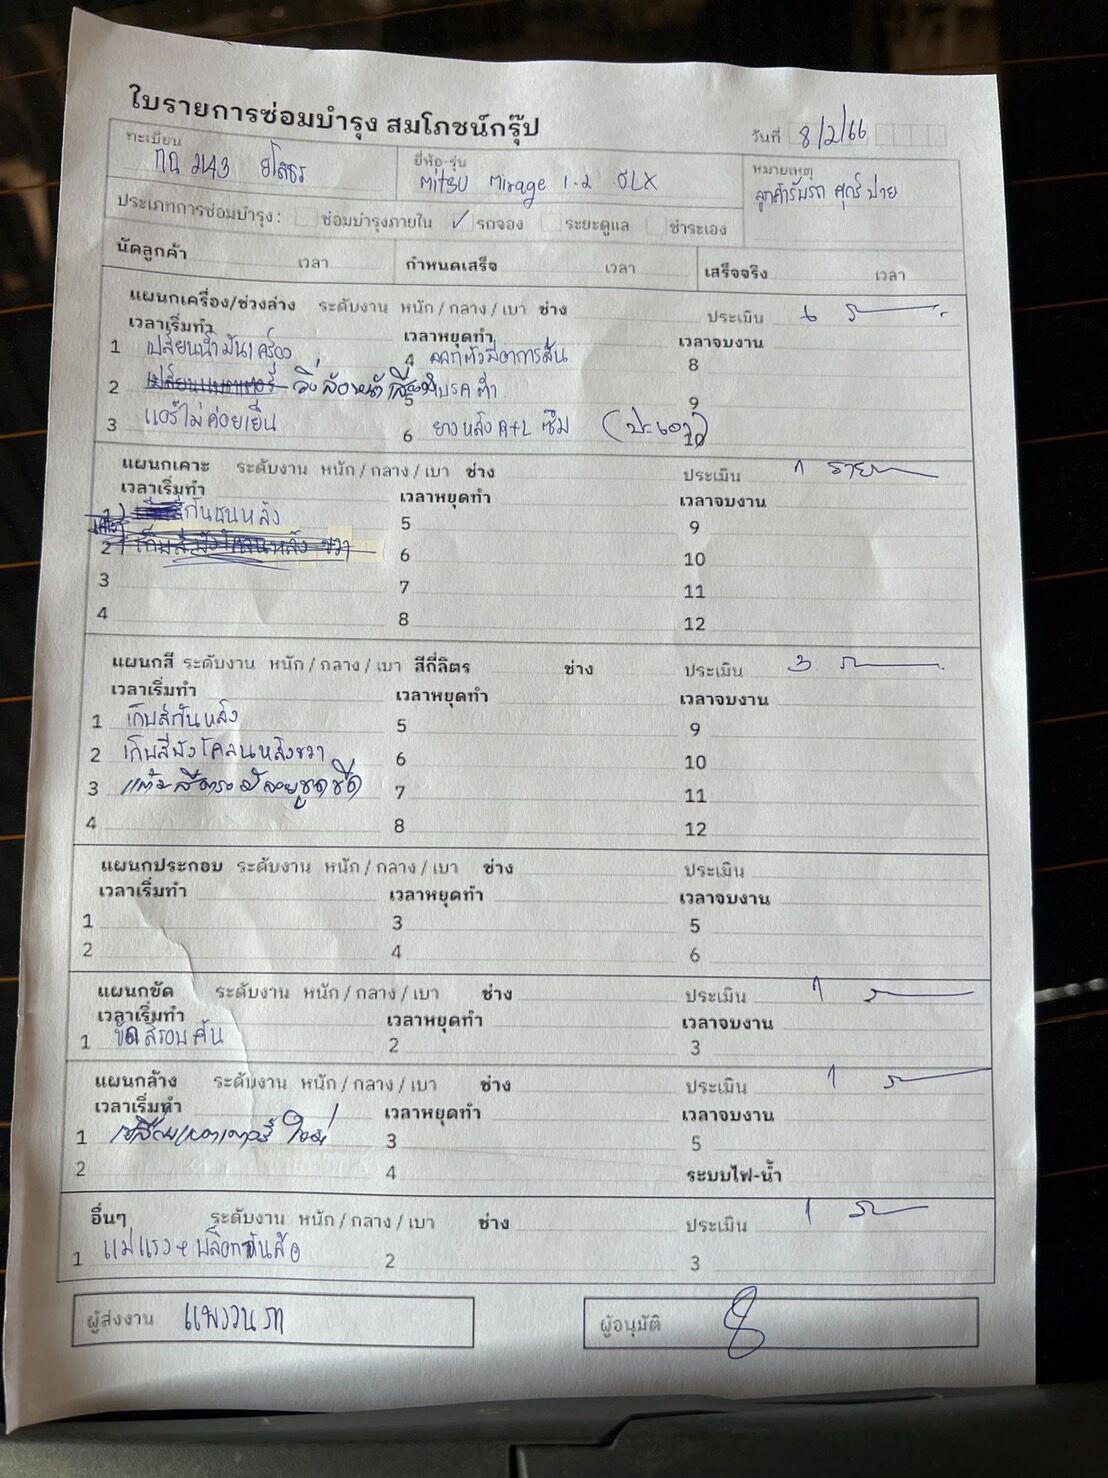 ใบรายการซ่อมบำรุง สมโภชน์กรุ๊ป
วันที่ 8/2/66
ทะเบียน
ยี่ห้อ-รุ่น
หมายเหตุ
กฉ 2143 ยโสธร
Mitsu Mirage 1.2 GLX
ลูกค้ารับรถ ศุกร์ บ่าย
ประเภทการซ่อมบำรุง : ซ่อมบำรุงภายใน ✓ รถจอง ระยะดูแล ชำระเอง
นัดลูกค้า เวลา กำหนดเสร็จ เวลา เสร็จจริง เวลา
แผนกเครื่อง/ช่วงล่าง ระดับงาน หนัก / กลาง / เบา ช่าง ประเมิน 6
เวลาเริ่มทำ เวลาหยุดทำ เวลาจบงาน
1 เปลี่ยนน้ำมันเครื่อง 4 อาการสั่น 8
2 5 9
3 แอร์ไม่ค่อยเย็น 6 ยางหลัง R+L ซึม (ปะเอง) 10
แผนกเคาะ ระดับงาน หนัก / กลาง / เบา ช่าง ประเมิน 1 ราย
เวลาเริ่มทำ เวลาหยุดทำ เวลาจบงาน
1 กันชนหลัง 5 9
2 6 10
3 7 11
4 8 12
แผนกสี ระดับงาน หนัก / กลาง / เบา สีกี่ลิตร ช่าง ประเมิน 3
เวลาเริ่มทำ เวลาหยุดทำ เวลาจบงาน
1 เก็บสีกันหลัง 5 9
2 เก็บสีบังโคลนหลังขวา 6 10
3 แต้มสีตรงมีรอยขูดขีด 7 11
4 8 12
แผนกประกอบ ระดับงาน หนัก / กลาง / เบา ช่าง ประเมิน
เวลาเริ่มทำ เวลาหยุดทำ เวลาจบงาน
1 3 5
2 4 6
แผนกขัด ระดับงาน หนัก / กลาง / เบา ช่าง ประเมิน 1
เวลาเริ่มทำ เวลาหยุดทำ เวลาจบงาน
1 ขัดสีรอบคัน 2 3
แผนกล้าง ระดับงาน หนัก / กลาง / เบา ช่าง ประเมิน 1
เวลาเริ่มทำ เวลาหยุดทำ เวลาจบงาน
1 เปลี่ยนแบตเตอรี่ ใหม่ 3 5
2 4 ระบบไฟ-น้ำ
อื่นๆ ระดับงาน หนัก / กลาง / เบา ช่าง ประเมิน 1
1 แม่แรง + บล็อกขันล้อ 2 3
ผู้ส่งงาน
ผู้อนุมัติ